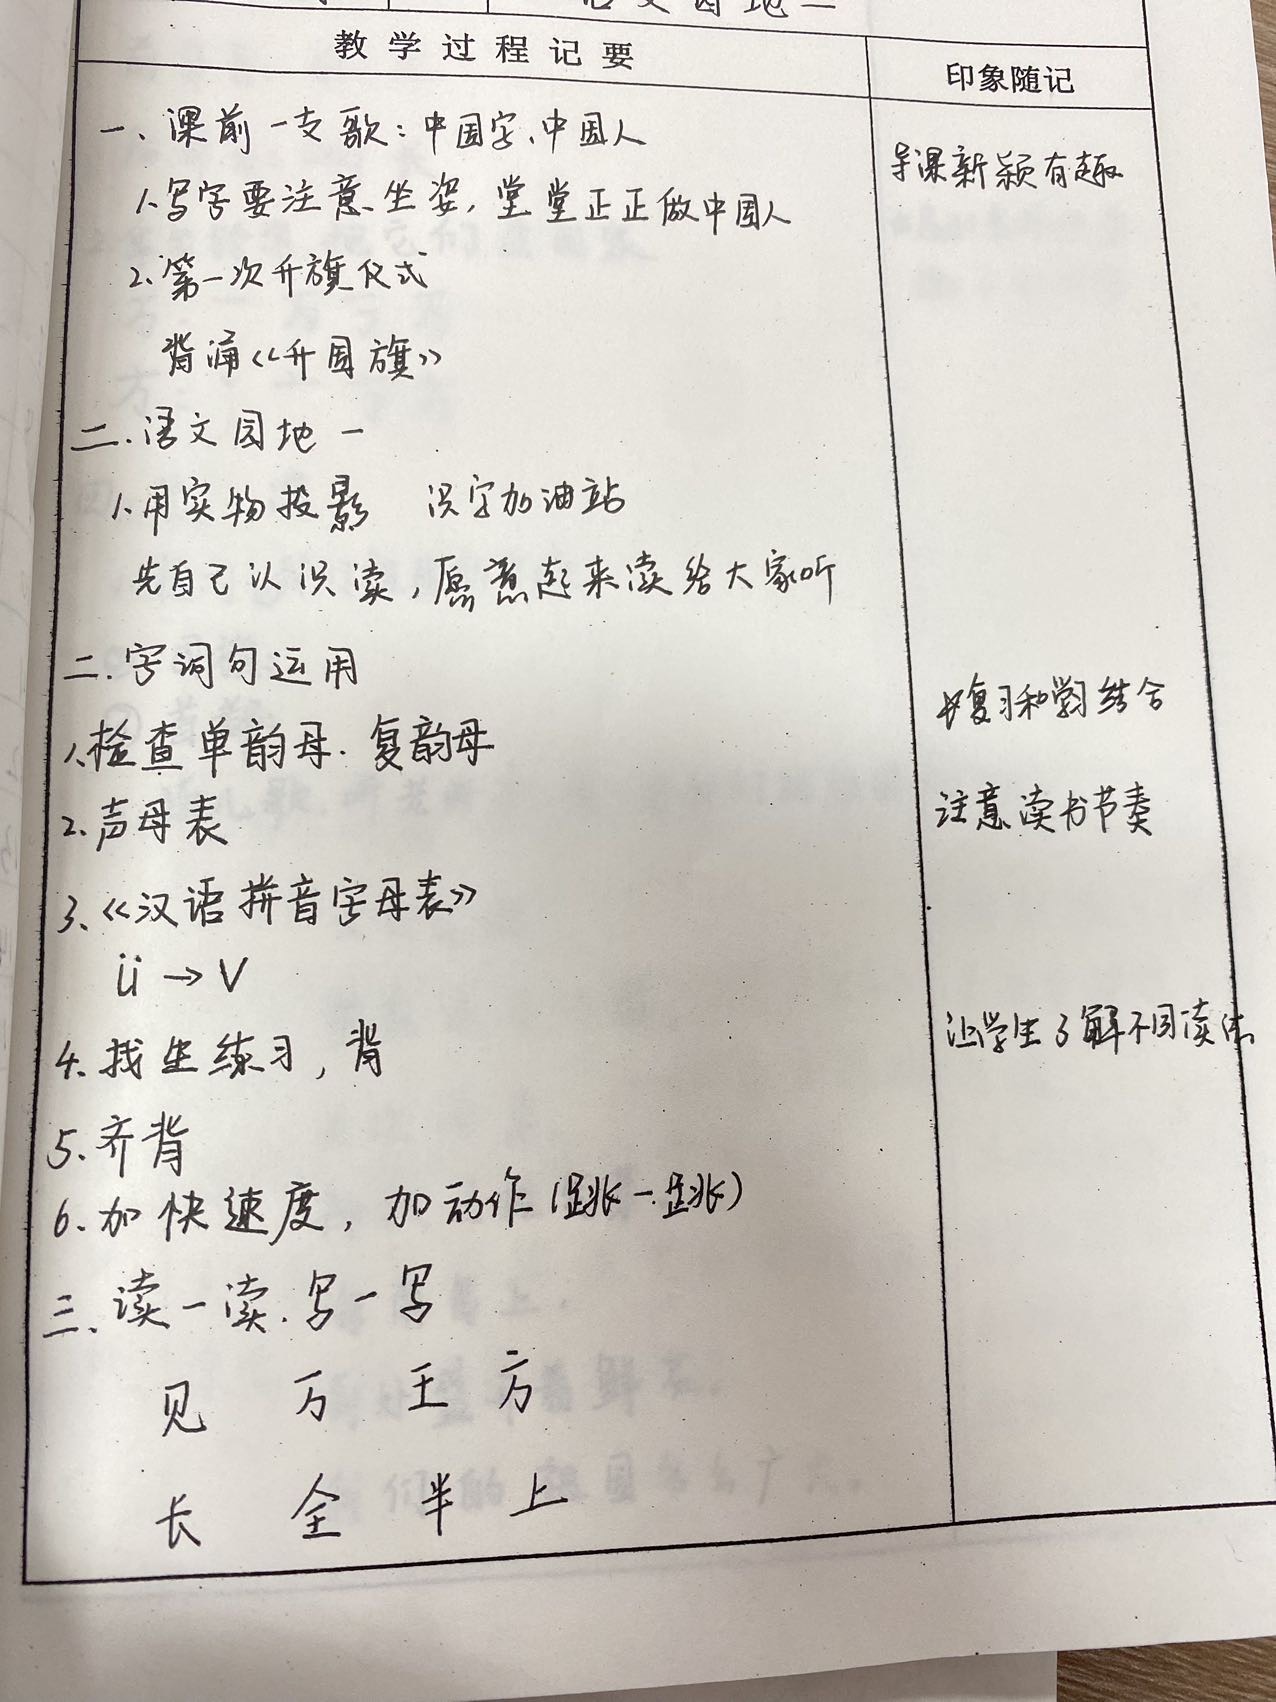 语文园地一
教学过程记要
印象随记
一、课前一支歌：中国字、中国人
导课新颖有趣
1.写字要注意坐姿，堂堂正正做中国人
2.第一次升旗仪式
背诵《升国旗》
二.语文园地一
1.用实物投影 识字加油站
先自己认识读，愿意起来读给大家听
二.字词句运用
复习和学习结合
1.检查单韵母.复韵母
注意读书节奏
2.声母表
3.《汉语拼音字母表》
ü→V
让学生了解不同读法
4.找生练习，背
5.齐背
6.加快速度，加动作（跳一跳）
三、读一读.写一写
见 万 王 方
长 全 半 上